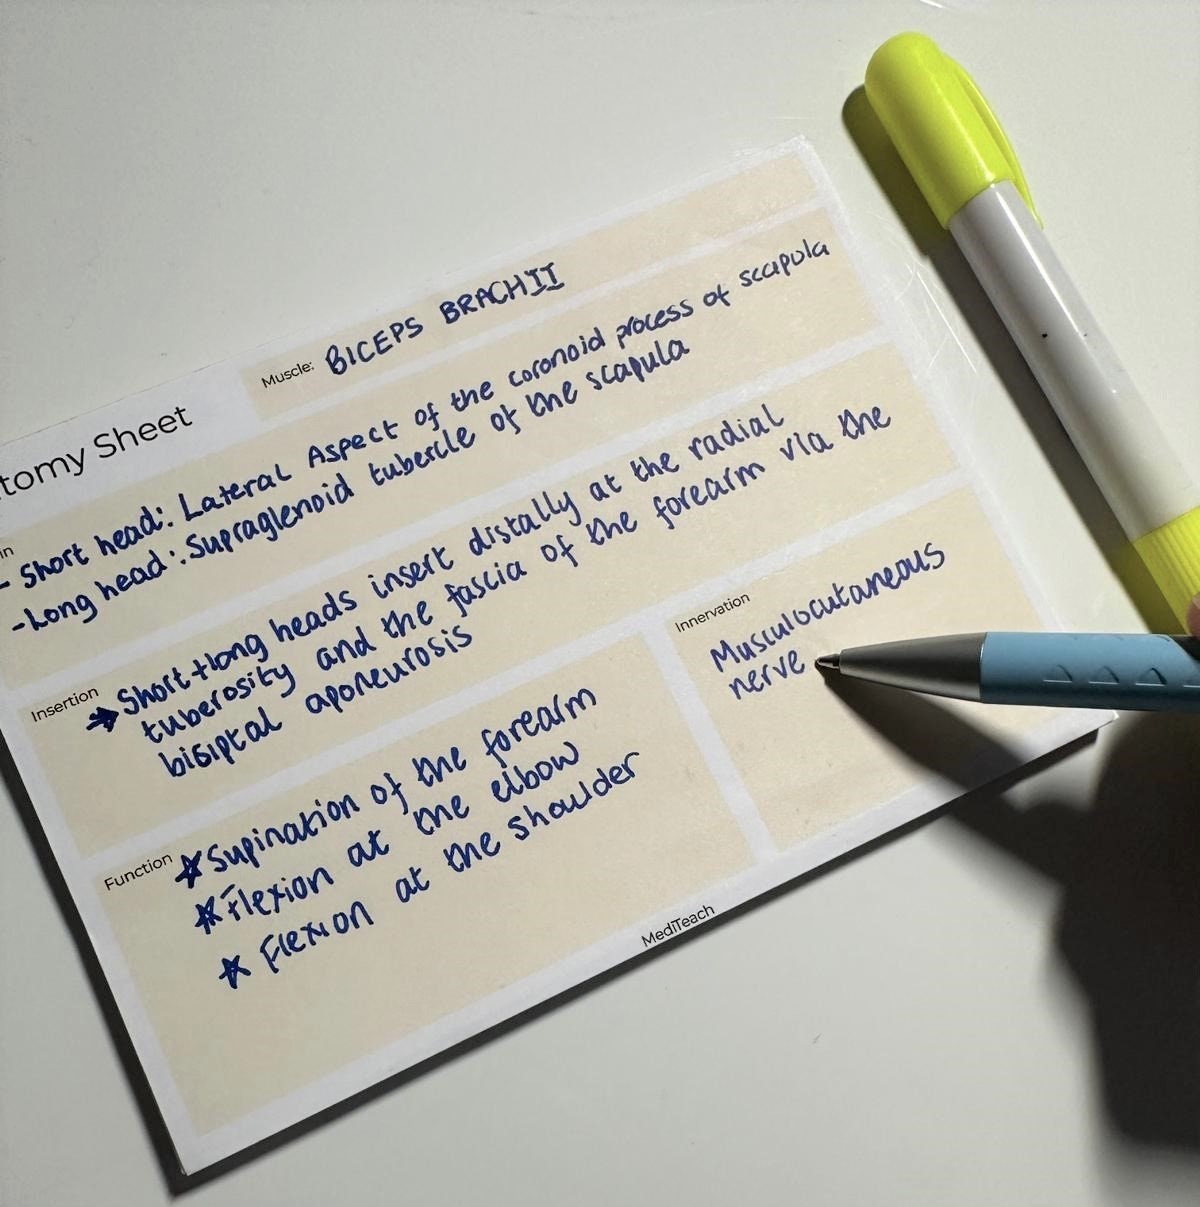 tomy Sheet
Muscle: BICEPS BRACHII
in
- Short head: Lateral Aspect of the coronoid process of scapula
- Long head: Supraglenoid tubercle of the scapula
Insertion
→ Short + long heads insert distally at the radial
tuberosity and the fascia of the forearm via the
bisiptal aponeurosis
Function
★ Supination of the forearm
★ Flexion at the elbow
★ Flexion at the shoulder
Innervation
Musculocutaneous
nerve
MediTeach